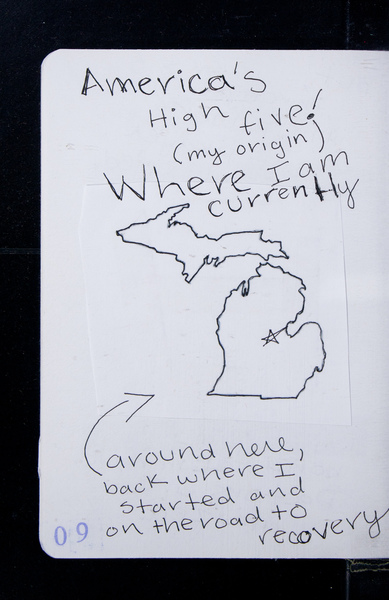 America's
High five!
(my origin)
Where I am
currently
around here,
back where I
started and
on the road to
recovery
09